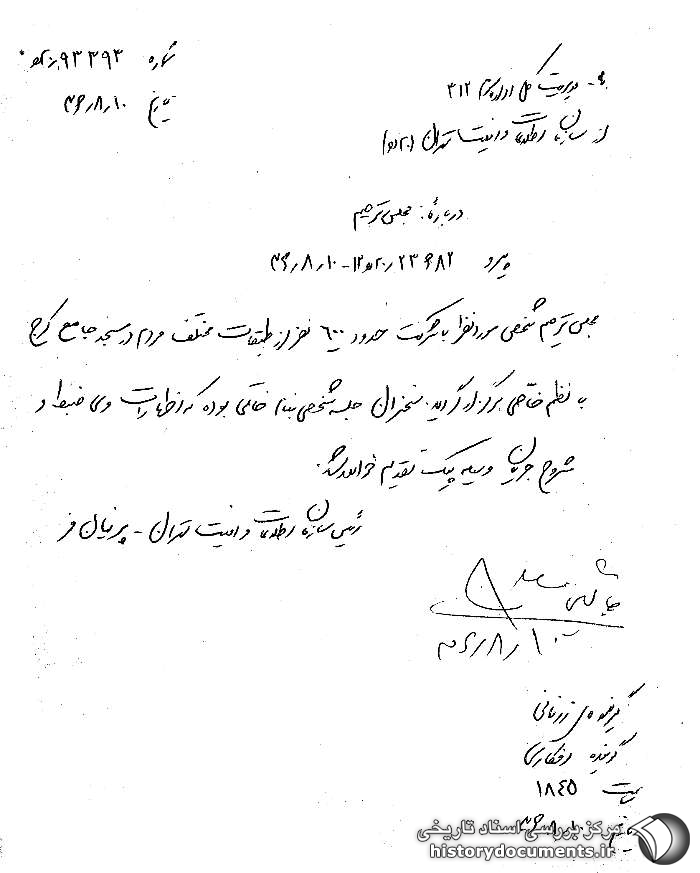 شماره ۲۰ﻫ/۹۳۳۹۳
تاریخ ۳۶/۸/۱۰
به مدیریت کل اداره سوم ۳۱۲
از سازمان اطلاعات و امنیت تهران (۲۰ﻫ)
درباره: مجلس ترحیم
پیرو ۲۳۶۸۲/۲۰ﻫ۱۲ - ۳۶/۸/۱۰
مجلس ترحیم شخص مورد نظر با شرکت حدود ۶۰۰ نفر از طبقات مختلف مردم در مسجد جامع کرج
با نظم خاصی برگزار گردید. سخنران جلسه شخصی بنام خاتمی بوده که اظهارات وی ضبط و
مشروح جریان وسیله پیک تقدیم خواهد شد.
رئیس سازمان اطلاعات و امنیت تهران - پرنیان فر
۳۶/۸/۱۰
گیرنده
گوینده
ساعت ۱۸۴۵
مرکز بررسی اسناد تاریخی
historydocuments.ir